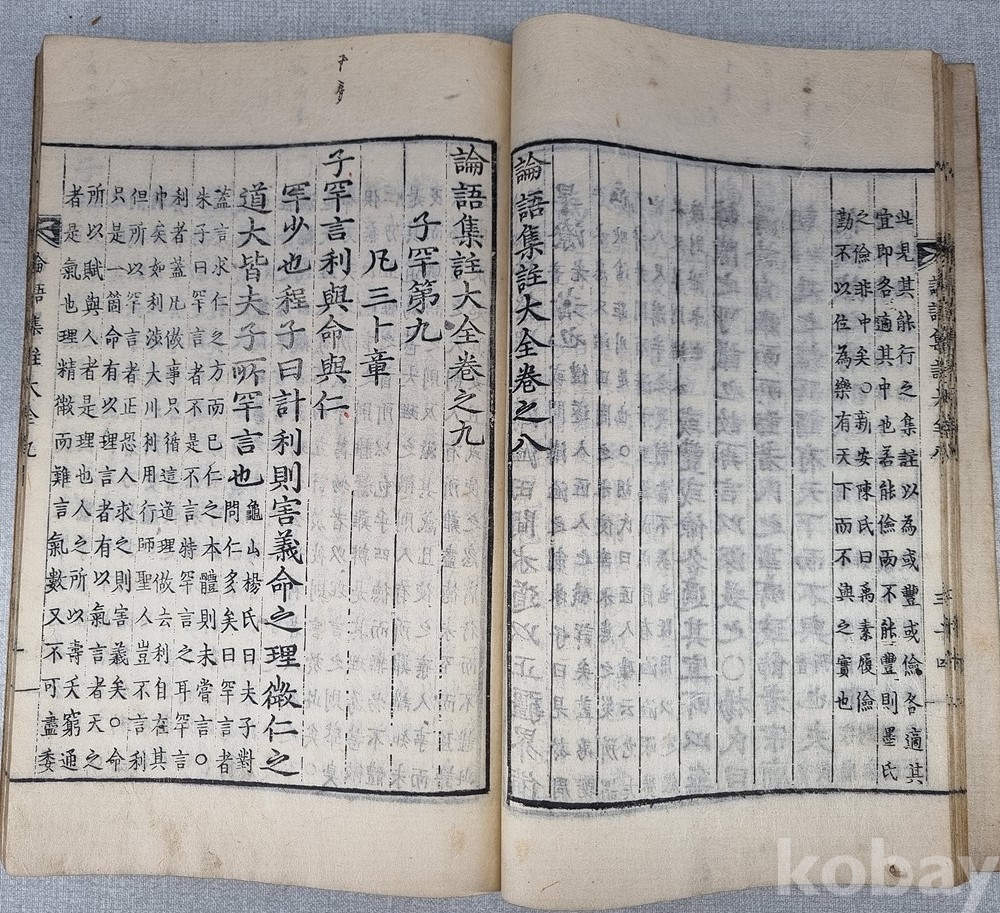 此是其能行之集註以為或豐或儉各適其
宜即各適其中也若能儉而不能豐則墨氏
之儉非中矣○新安陳氏曰禹素履儉
勤不以位為樂有天下而不與之實也
論語集註大全卷之八
論語集註大全卷之九
子罕第九
凡三十章
子罕言利與命與仁
罕少也程子曰計利則害義命之理微仁之
道大皆夫子所罕言也
龜山楊氏曰夫子對
問仁多矣曰罕言者
蓋言求仁之方而已仁之本體則未嘗言○
朱子曰罕言者不是不言特罕言之耳罕言
利者蓋凡做事只循這道理做去利自在其
中矣如利涉大川利用行師聖人豈不言利
但所以罕言者正恐人求之則害義矣○命
只是一箇命有以理言者有以氣言者天之
所以賦與人者是理也人之所以壽夭窮通
者是氣也理精微而難言氣數又不可盡委
論語集註大全九
kobay